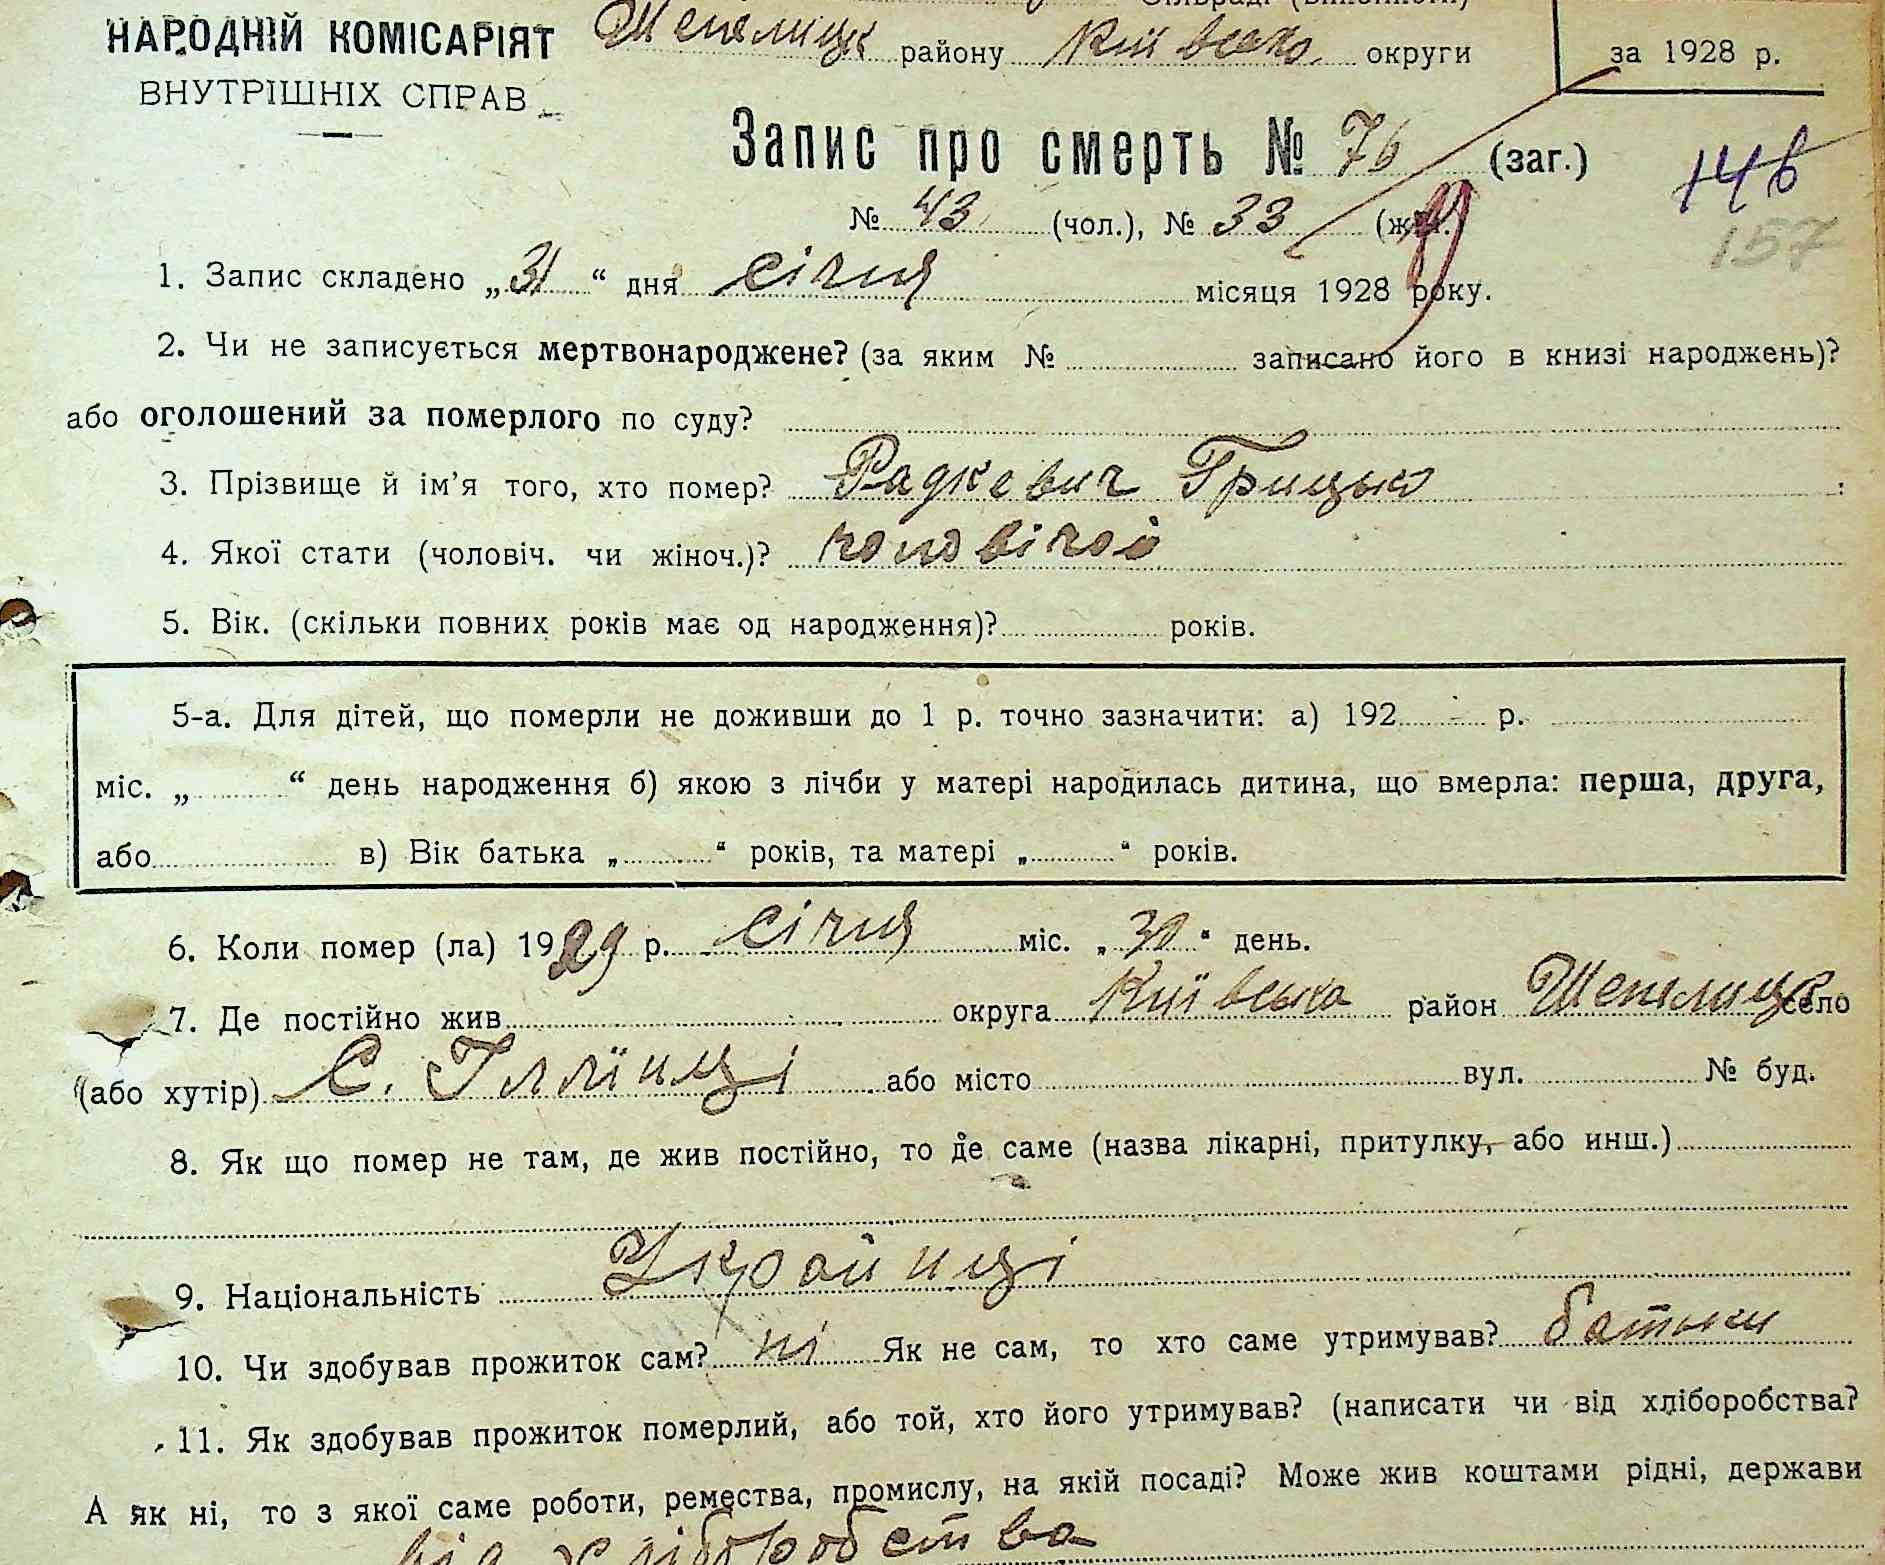 Сільраді (Виконкомі)
НАРОДНІЙ КОМІСАРІЯТ
ВНУТРІШНІХ СПРАВ
Шепелицьк району Київсько округи
за 1928 р.
Запис про смерть № 76 (заг.)
146
№ 43 (чол.), № 33 (жін.)
157
1. Запис складено „31“ дня січня місяця 1928 року.
2. Чи не записується мертвонароджене? (за яким № записано його в книзі народжень)?
або оголошений за померлого по суду?
3. Прізвище й ім'я того, хто помер? Радкевич Грицько
4. Якої стати (чоловіч. чи жіноч.)? чоловічой
5. Вік. (скільки повних років має од народження)? років.
5-а. Для дітей, що померли не доживши до 1 р. точно зазначити: а) 192 р.
міс. „ “ день народження б) якою з лічби у матері народилась дитина, що вмерла: перша, друга,
або в) Вік батька „ “ років, та матері „ “ років.
6. Коли помер (ла) 1929 р. січня міс. „30“ день.
7. Де постійно жив округа Київська район Шепелицьк село
(або хутір) С. Іллїнці або місто вул. № буд.
8. Як що помер не там, де жив постійно, то де саме (назва лікарні, притулку, або инш.)
9. Національність Україиці
10. Чи здобував прожиток сам? ні Як не сам, то хто саме утримував? батьки
11. Як здобував прожиток померлий, або той, хто його утримував? (написати чи від хліборобства?
А як ні, то з якої саме роботи, ремества, промислу, на якій посаді? Може жив коштами рідні, держави
від хліборобства